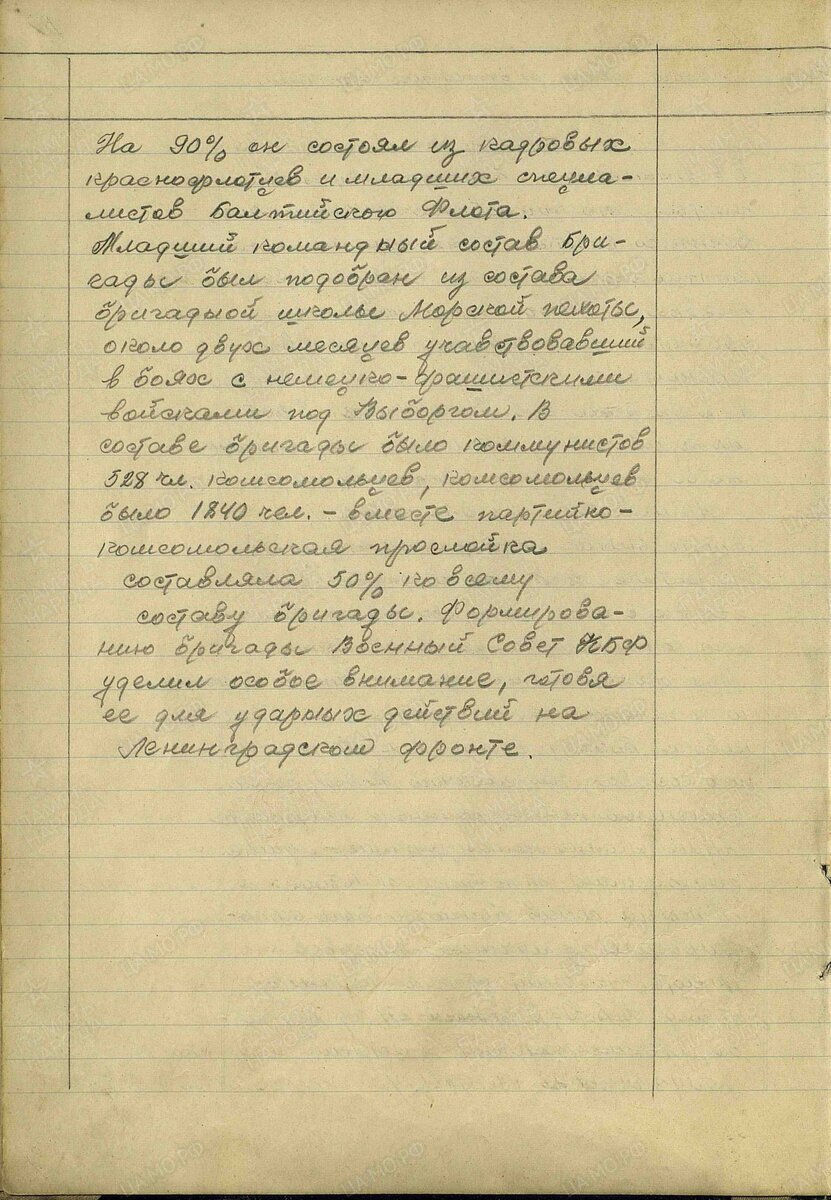 На 90% он состоял из кадровых
краснофлотцев и младших специа-
листов Балтийского Флота.
Младший командный состав бри-
гады был подобран из состава
бригадной школы Морской пехоты,
около двух месяцев учавствовавший
в боях с немецко-фашистскими
войсками под Выборгом. В
составе бригады было коммунистов
528 чл. комсомольцев, комсомольцев
было 1840 чел. - вместе партийно-
комсомольская прослойка
составляла 50% ко всему
составу бригады. Формирова-
нию бригады Военный Совет КБФ
уделил особое внимание, готовя
ее для ударных действий на
Ленинградском фронте.